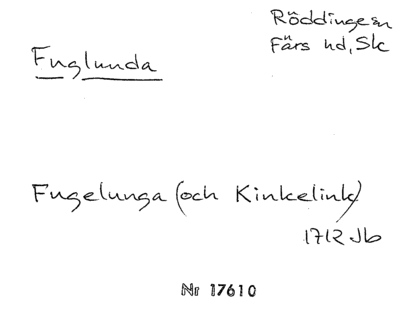 Röddinge sn
Färs hd, Sk
Fuglunda
Fugelunga (och Kinkelink)
1712 Jb
Nr 17610